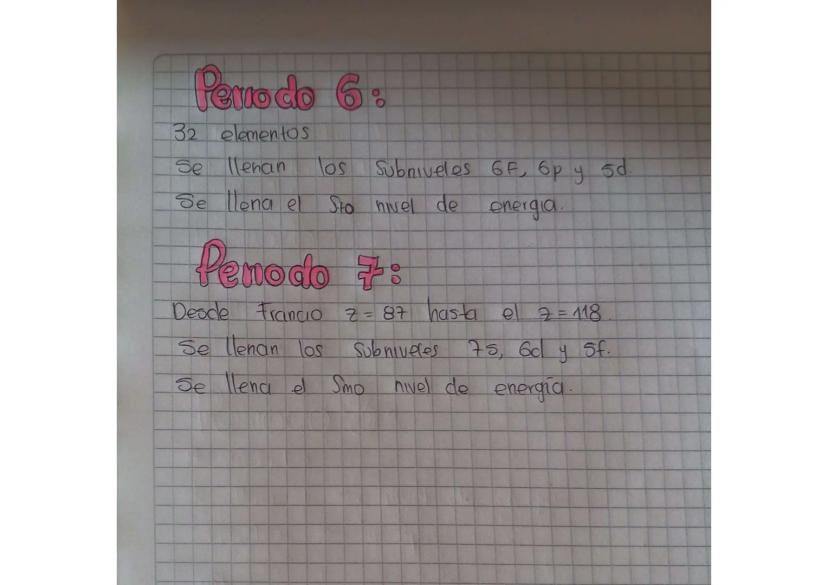 Periodo 6:
32 elementos
Se llenan los subniveles 6F, 6p y 5d.
Se llena el 5to nivel de energía.
Periodo 7:
Desde Francio z=87 hasta el z=118.
Se llenan los subniveles 7s, 6d y 5f.
Se llena el 5mo nivel de energía.